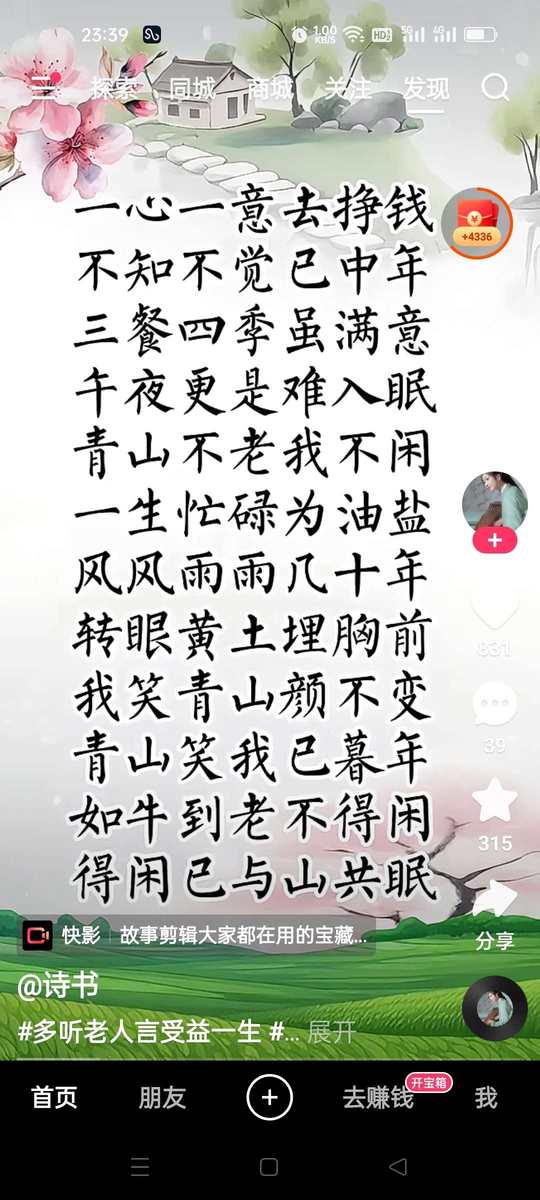 23:39
1.00 KB/S HD 5G 4G
探索 同城 商城 关注 发现
+4336
一心一意去挣钱
不知不觉已中年
三餐四季虽满意
午夜更是难入眠
青山不老我不闲
一生忙碌为油盐
风风雨雨几十年
转眼黄土埋胸前
我笑青山颜不变
青山笑我已暮年
如牛到老不得闲
得闲已与山共眠
831
39
315
分享
快影 | 故事剪辑大家都在用的宝藏...
@诗书
#多听老人言受益一生 #... 展开
首页 朋友 去赚钱 开宝箱 我